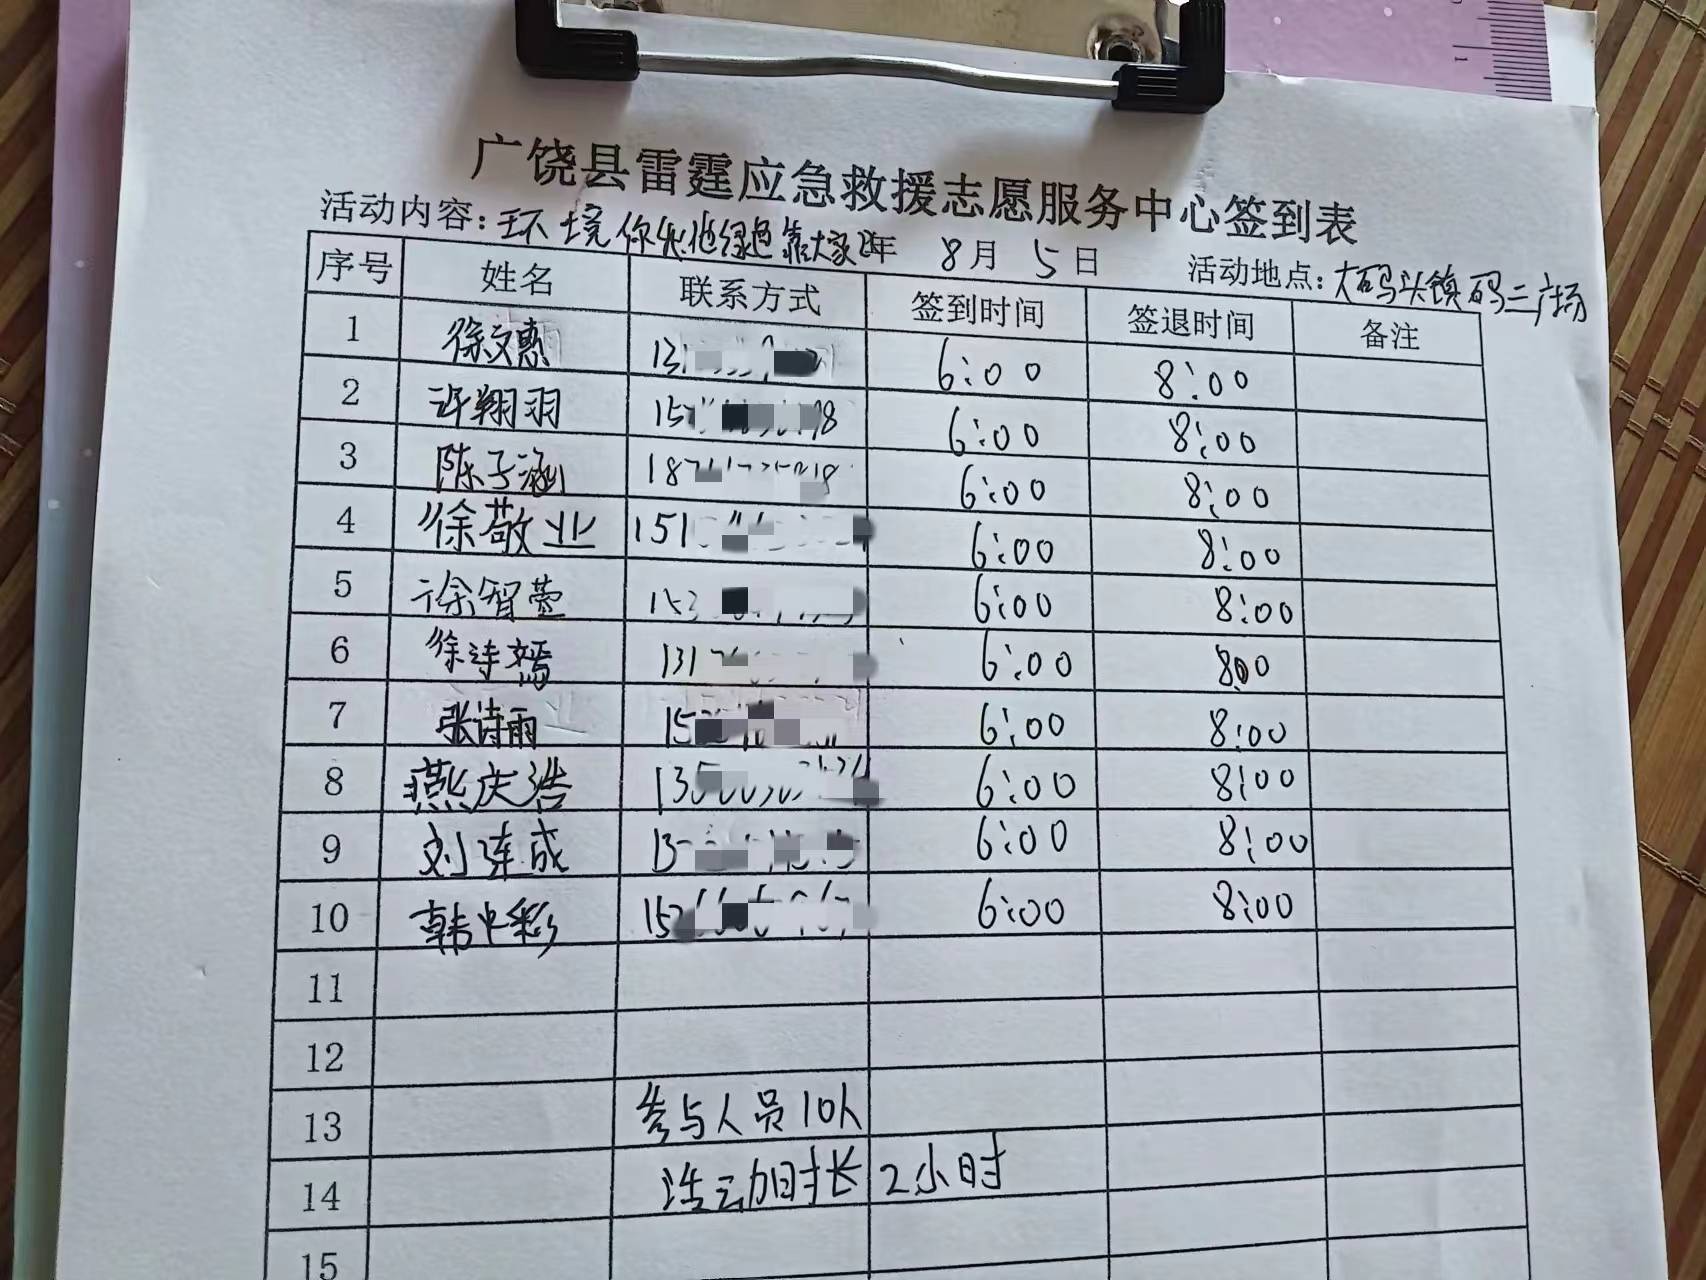 广饶县雷霆应急救援志愿服务中心签到表
活动内容：环境你我他绿色靠大家 年 8月 5日 活动地点：大码头镇码二广场
序号 姓名 联系方式 签到时间 签退时间 备注
1 徐文惠 6:00 8:00
2 许翔羽 6:00 8:00
3 陈子涵 6:00 8:00
4 徐敬业 151 6:00 8:00
5 徐智萱 6:00 8:00
6 徐诗嫣 6:00 8:00
7 张诗雨 6:00 8:00
8 燕庆浩 6:00 8:00
9 刘连成 6:00 8:00
10 韩中彩 6:00 8:00
11
12
13 参与人员10人
14 活动时长2小时
15